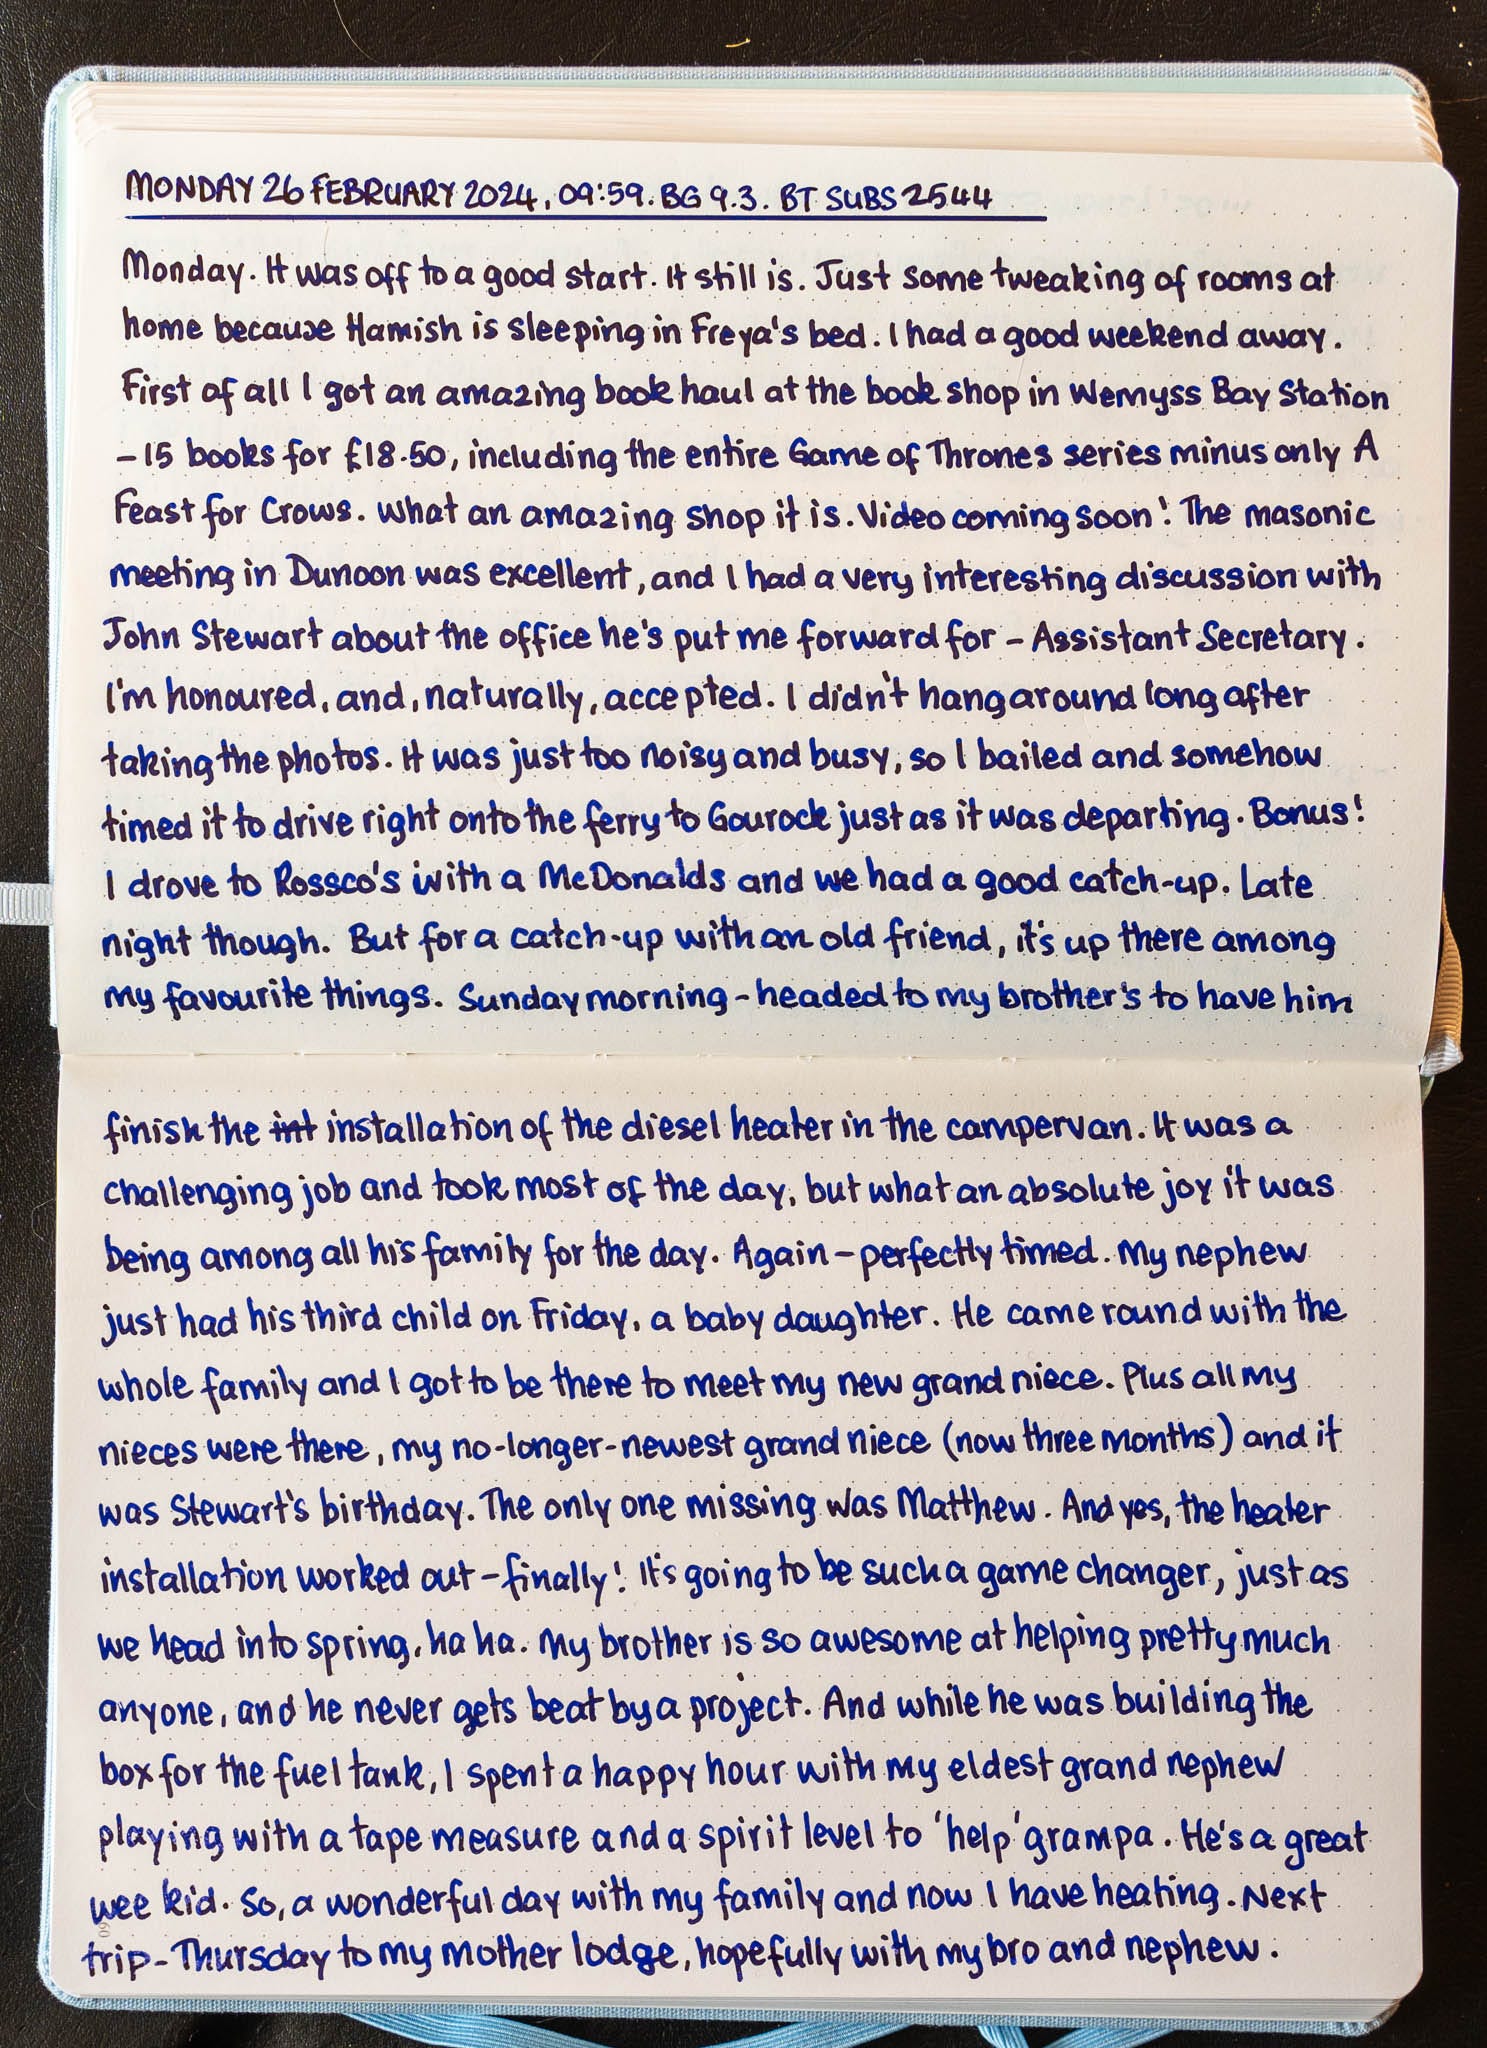 MONDAY 26 FEBRUARY 2024, 09:59. BG 9.3. BT SUBS 2544
Monday. It was off to a good start. It still is. Just some tweaking of rooms at
home because Hamish is sleeping in Freya's bed. I had a good weekend away.
First of all I got an amazing book haul at the book shop in Wemyss Bay Station
- 15 books for £18.50, including the entire Game of Thrones series minus only A
Feast for Crows. What an amazing shop it is. Video coming soon! The masonic
meeting in Dunoon was excellent, and I had a very interesting discussion with
John Stewart about the office he's put me forward for - Assistant Secretary.
I'm honoured, and, naturally, accepted. I didn't hang around long after
taking the photos. It was just too noisy and busy, so I bailed and somehow
timed it to drive right onto the ferry to Gourock just as it was departing. Bonus!
I drove to Rossco's with a McDonalds and we had a good catch-up. Late
night though. But for a catch-up with an old friend, it's up there among
my favourite things. Sunday morning - headed to my brother's to have him
finish the int installation of the diesel heater in the campervan. It was a
challenging job and took most of the day, but what an absolute joy it was
being among all his family for the day. Again - perfectly timed. My nephew
just had his third child on Friday, a baby daughter. He came round with the
whole family and I got to be there to meet my new grand niece. Plus all my
nieces were there, my no-longer-newest grand niece (now three months) and it
was Stewart's birthday. The only one missing was Matthew. And yes, the heater
installation worked out - finally! It's going to be such a game changer, just as
we head into spring, ha ha. My brother is so awesome at helping pretty much
anyone, and he never gets beat by a project. And while he was building the
box for the fuel tank, I spent a happy hour with my eldest grand nephew
playing with a tape measure and a spirit level to 'help' grampa. He's a great
wee kid. So, a wonderful day with my family and now I have heating. Next
trip - Thursday to my mother lodge, hopefully with my bro and nephew.